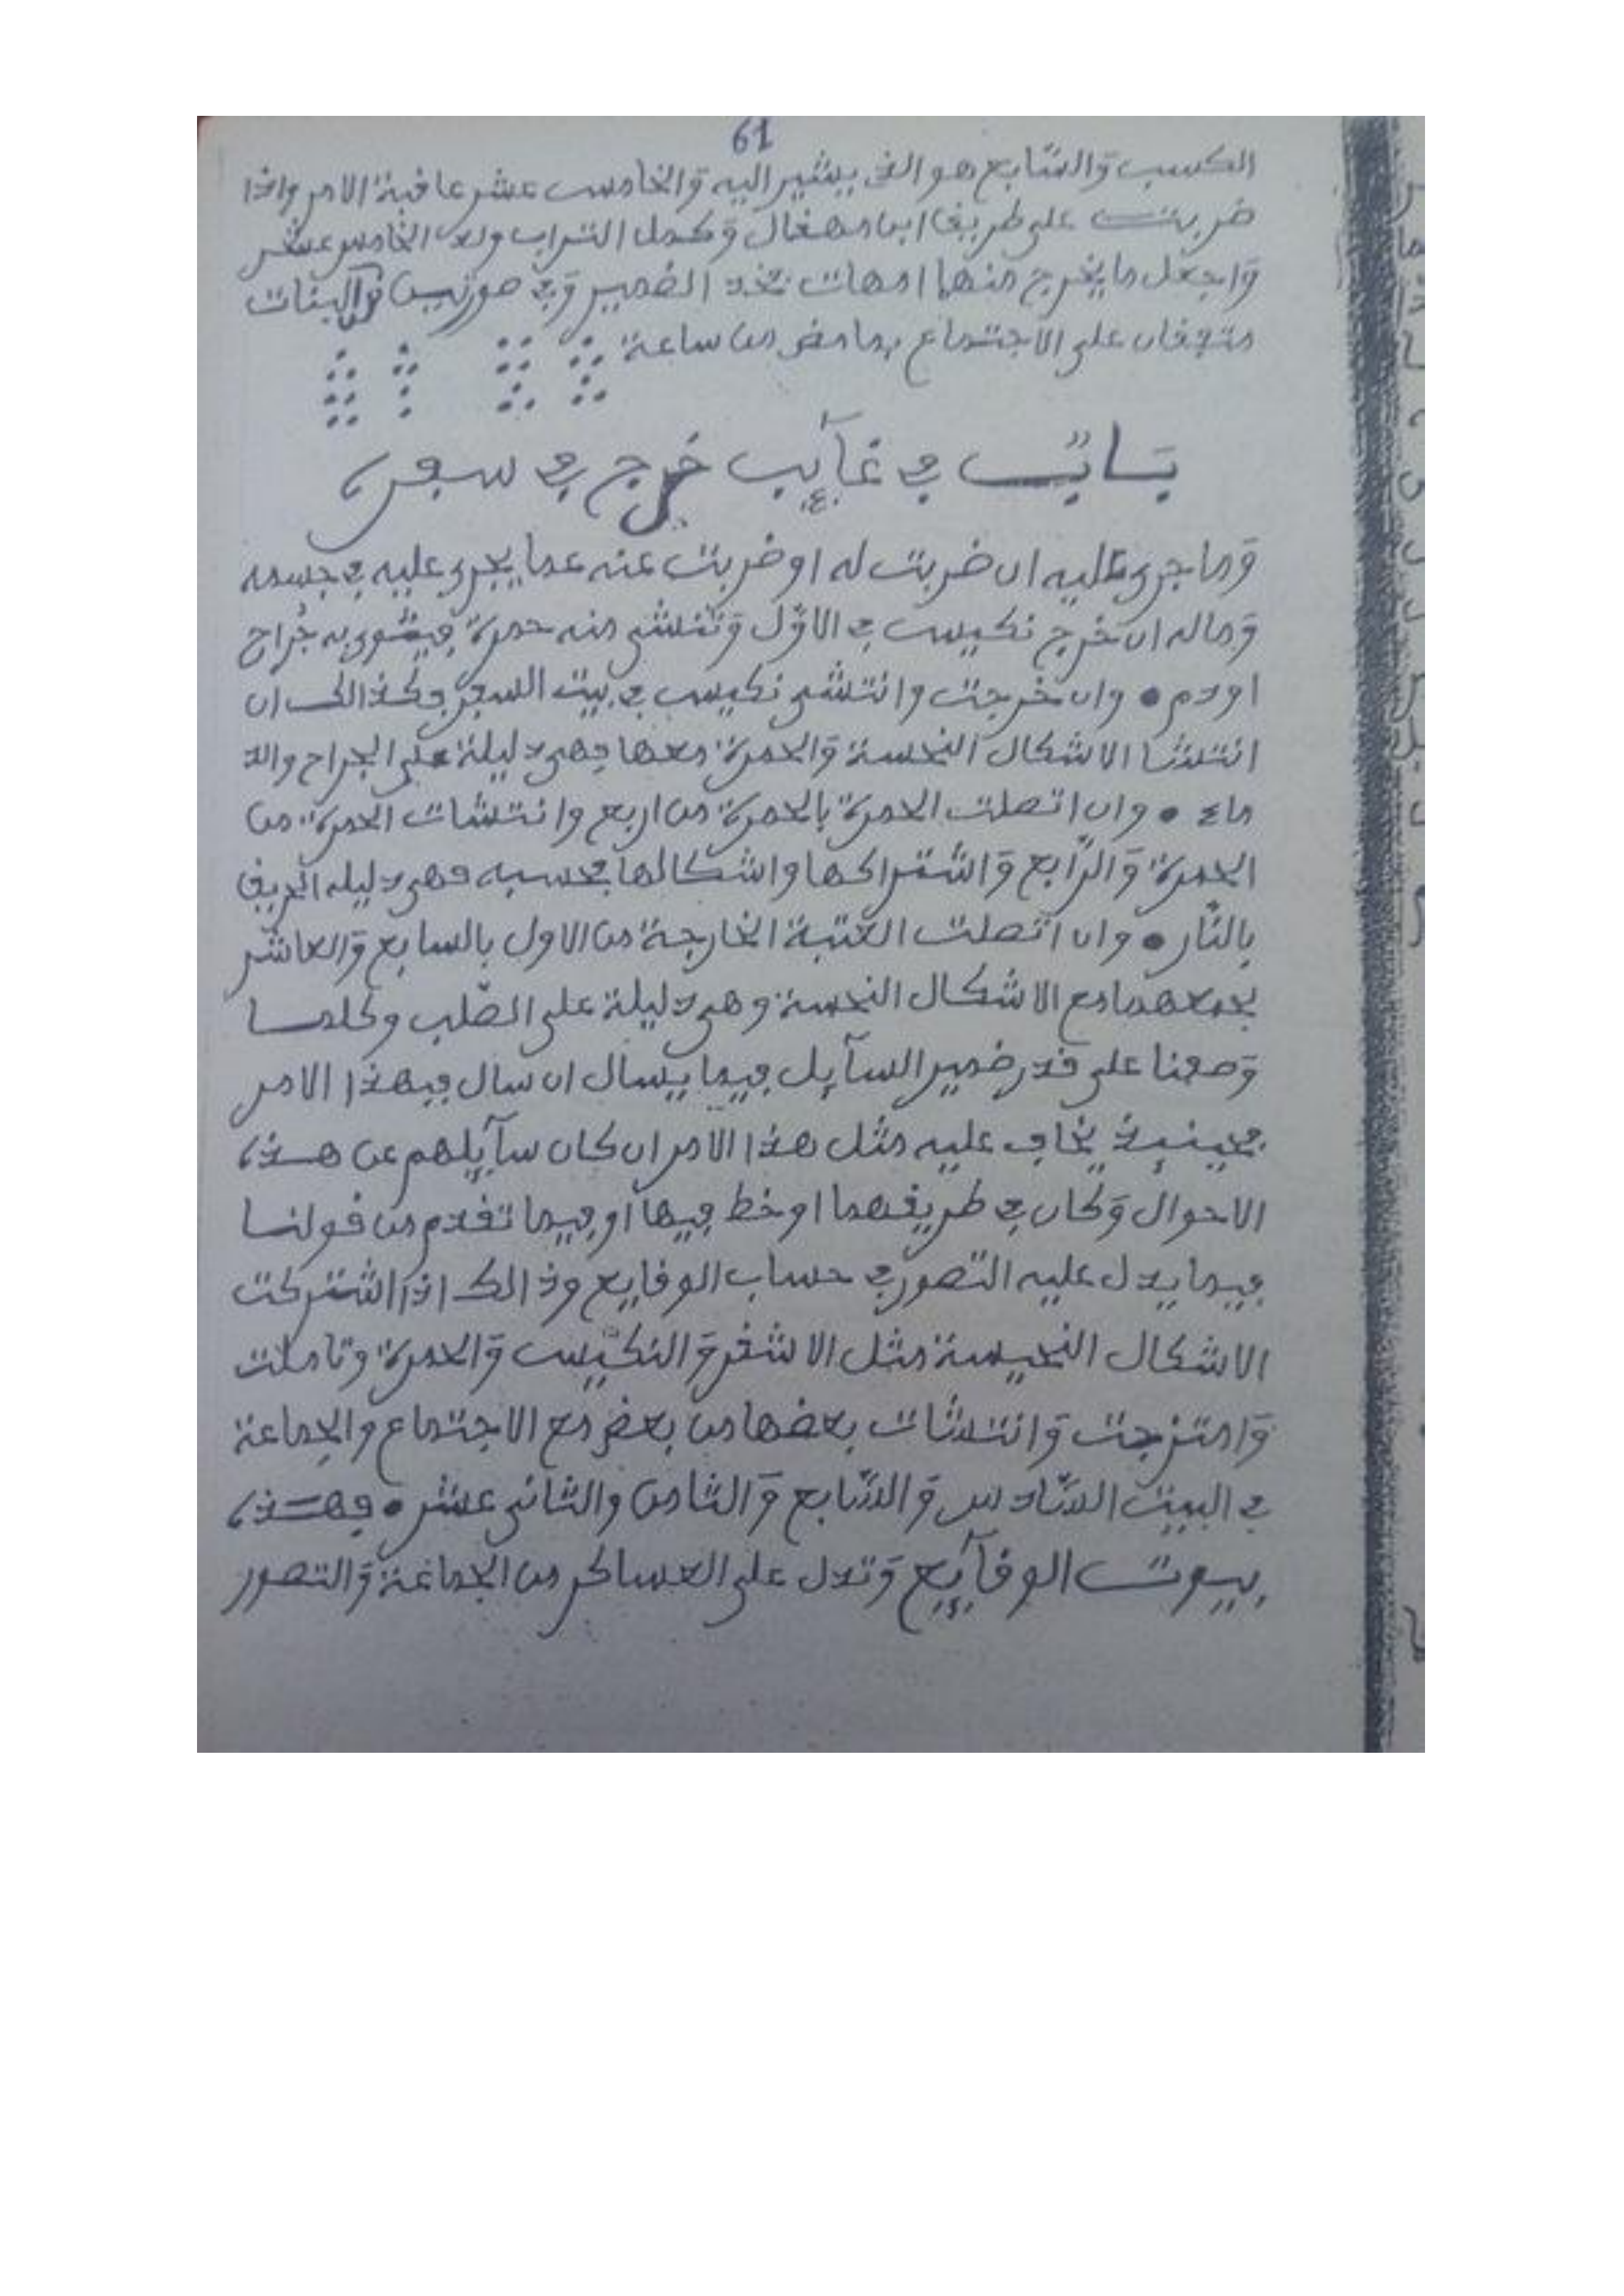 61
الكسب وَالسّابع هو الذي يشير اليه وَالخامس عشر عافبة الامر واذا
ضربت على طريفا ابن وكمل التراب ولد الخامس عشر
وَاجعل ما يخرج منهما امهات تجد الضمير وَفي صورتين وَالبنات
متفقان على الاجتماع بما مضى من ساعة
بَابٌ في غآيب خرج في سفره
وَما جرى عليه ان ضربت له او ضربت عنه عما يجرى عليه في جسمه
وَماله ان خرج نكيس في الاوّل وَتنشى منه حمرة فيشوى به جُراح
او دم • وان خرجت وانتشى نكيس في بيت السفر فكذالك ان
انتشا الاشكال النحسة وَالحمرة معها فهى دليلة على الجراح والد
ماء • وان اتصلت الحمرة بالحمرة من اربع وانتشات الحمرة من
الحمرة وَالرّابع وَاشتراكها واشكالها بحسبه فهى دليله الحريف
بالنّار • وان اتصلت العتبة الخارجة من الاول بالسابع وَالعاشر
بجمعهما مع الاشكال النحسة وهى دليلة على الصّلب وكلما
وَصفنا على فدر ضمير السآيل فيما يسال ان سال فيهذا الامر
فحينيذ يخاف عليه مثل هذا الامر ان كان سآيلهم عن هذه
الاحوال وَكان في طريفهما او خط فيها او فيما تفدم من فولنا
فيما يدل عليه التصور في حساب الوفايع وذالك اذا اشتركت
الاشكال النحيسة مثل الاشفر وَالنكيس وَالحمرة وتاملت
وَامتزجت وَانتشات بعضها من بعض مع الاجتماع والجماعة
في البيت السّادس وَالسّابع وَالثامن والثانى عشر • فهذه
بيوت الوفآيع وَتدل على العساكر من الجماعة وَالتصور